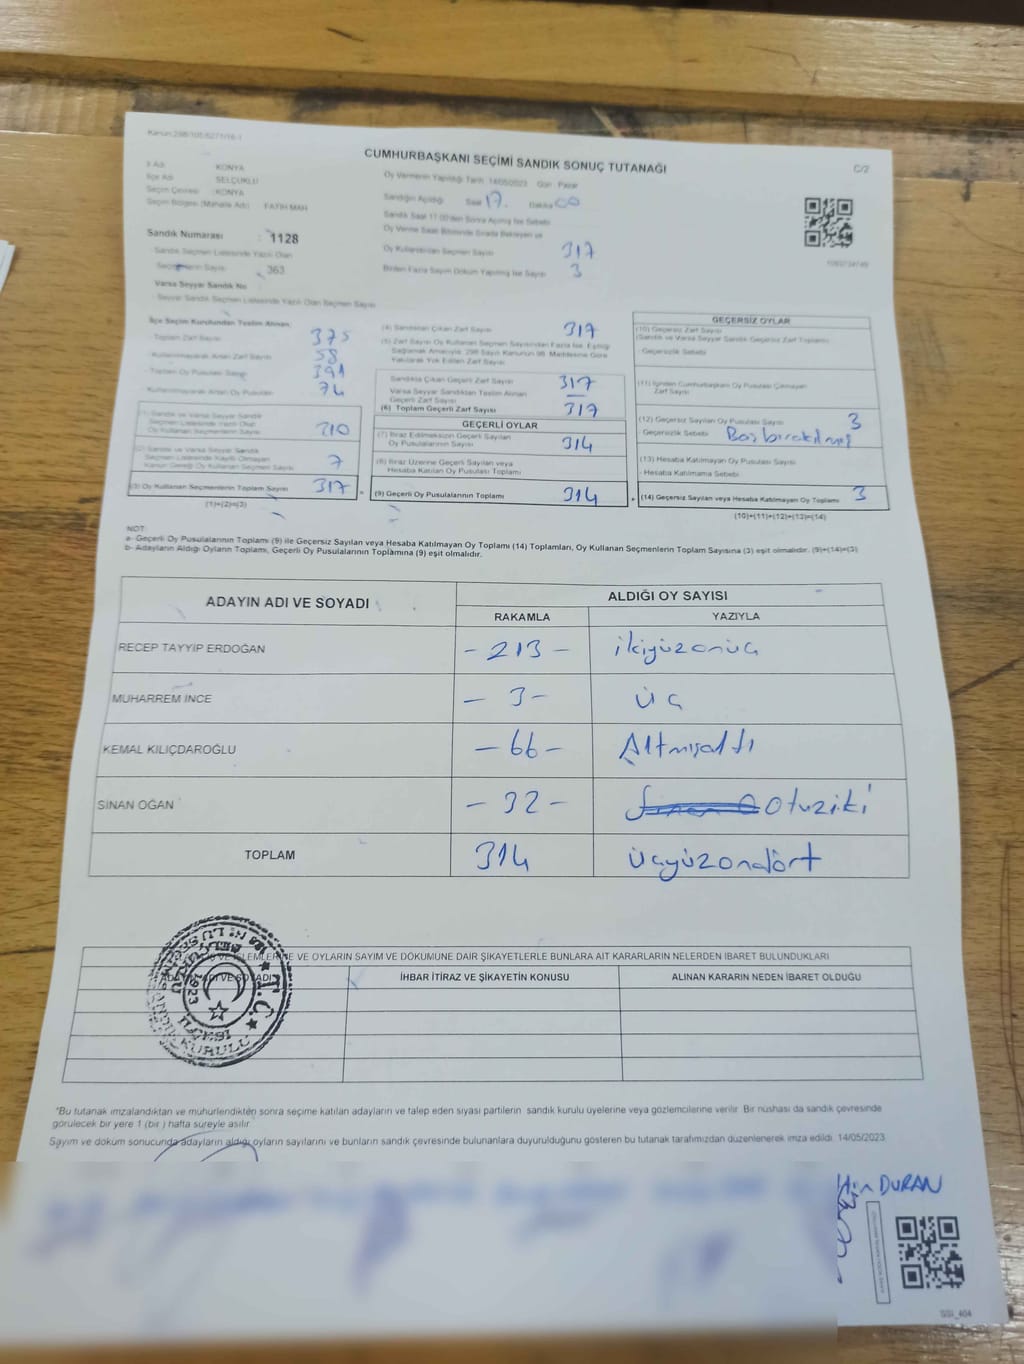 Kanun:298/105,6271/16-1
CUMHURBAŞKANI SEÇİMİ SANDIK SONUÇ TUTANAĞI
C/2
İl Adı : KONYA
İlçe Adı : SELÇUKLU
Seçim Çevresi : KONYA
Seçim Bölgesi (Mahalle Adı) : FATİH MAH
Oy Vermenin Yapıldığı Tarih : 14/05/2023 Gün : Pazar
Sandığın Açıldığı Saat 17. Dakika 00
Sandık Saat 17.00'den Sonra Açılmış İse Sebebi
Oy Verme Saati Bitiminde Sırada Bekleyen ve
Oy Kullandırılan Seçmen Sayısı 317
Birden Fazla Sayım Döküm Yapılmış İse Sayısı 3
Sandık Numarası : 1128
Sandık Seçmen Listesinde Yazılı Olan
Seçmenlerin Sayısı : 363
Varsa Seyyar Sandık No
Seyyar Sandık Seçmen Listesinde Yazılı Olan Seçmen Sayısı
İlçe Seçim Kurulundan Teslim Alınan:
Toplam Zarf Sayısı 375
Kullanılmayarak Artan Zarf Sayısı 58
Toplam Oy Pusulası Sayısı 391
Kullanılmayarak Artan Oy Pusulası 74
(1) Sandık ve Varsa Seyyar Sandık
Seçmen Listesinde Yazılı Olan
Oy Kullanan Seçmenlerin Sayısı 310
(2) Sandık ve Varsa Seyyar Sandık
Seçmen Listesinde Kayıtlı Olmayan
Kanun Gereği Oy Kullanan Seçmen Sayısı 7
(3) Oy Kullanan Seçmenlerin Toplam Sayısı 317
(1)+(2)=(3)
(4) Sandıktan Çıkan Zarf Sayısı 317
(5) Zarf Sayısı Oy Kullanan Seçmen Sayısından Fazla İse, Eşitliği
Sağlamak Amacıyla, 298 Sayılı Kanunun 98. Maddesine Göre
Yakılarak Yok Edilen Zarf Sayısı
Sandıkta Çıkan Geçerli Zarf Sayısı 317
Varsa Seyyar Sandıktan Teslim Alınan
Geçerli Zarf Sayısı —
(6) Toplam Geçerli Zarf Sayısı 317
GEÇERLİ OYLAR
(7) İtiraz Edilmeksizin Geçerli Sayılan
Oy Pusulalarının Sayısı 314
(8) İtiraz Üzerine Geçerli Sayılan veya
Hesaba Katılan Oy Pusulası Toplamı
(9) Geçerli Oy Pusulalarının Toplamı 314
GEÇERSİZ OYLAR
(10) Geçersiz Zarf Sayısı
(Sandık ve Varsa Seyyar Sandık Geçersiz Zarf Toplamı)
- Geçersizlik Sebebi
(11) İçinden Cumhurbaşkanı Oy Pusulası Çıkmayan
Zarf Sayısı
(12) Geçersiz Sayılan Oy Pusulası Sayısı 3
Geçersizlik Sebebi Boş bırakılmış
(13) Hesaba Katılmayan Oy Pusulası Sayısı
- Hesaba Katılmama Sebebi
(14) Geçersiz Sayılan veya Hesaba Katılmayan Oy Toplamı 3
(10)+(11)+(12)+(13)=(14)
NOT:
a- Geçerli Oy Pusulalarının Toplamı (9) ile Geçersiz Sayılan veya Hesaba Katılmayan Oy Toplamı (14) Toplamları, Oy Kullanan Seçmenlerin Toplam Sayısına (3) eşit olmalıdır. (9)+(14)=(3)
b- Adayların Aldığı Oyların Toplamı, Geçerli Oy Pusulalarının Toplamına (9) eşit olmalıdır.
ADAYIN ADI VE SOYADI
ALDIĞI OY SAYISI
RAKAMLA YAZIYLA
RECEP TAYYİP ERDOĞAN - 213 - ikiyüzonüç
MUHARREM İNCE - 3 - üç
KEMAL KILIÇDAROĞLU - 66 - Altmışaltı
SİNAN OĞAN - 32 - Otuziki
TOPLAM 314 üçyüzondört
VE OYLARIN SAYIM VE DÖKÜMÜNE DAİR ŞİKAYETLERLE BUNLARA AİT KARARLARIN NELERDEN İBARET BULUNDUKLARI
İHBAR İTİRAZ VE ŞİKAYETİN KONUSU ALINAN KARARIN NEDEN İBARET OLDUĞU
T.C.
İLÇESİ
1923
*Bu tutanak imzalandıktan ve mühürlendikten sonra seçime katılan adayların ve talep eden siyasi partilerin sandık kurulu üyelerine veya gözlemcilerine verilir. Bir nüshası da sandık çevresinde
görülecek bir yere 1 (bir ) hafta süreyle asılır.
Sayım ve döküm sonucunda adayların aldığı oyların sayılarını ve bunların sandık çevresinde bulunanlara duyurulduğunu gösteren bu tutanak tarafımızdan düzenlenerek imza edildi. 14/05/2023
DURAN
SSI_404